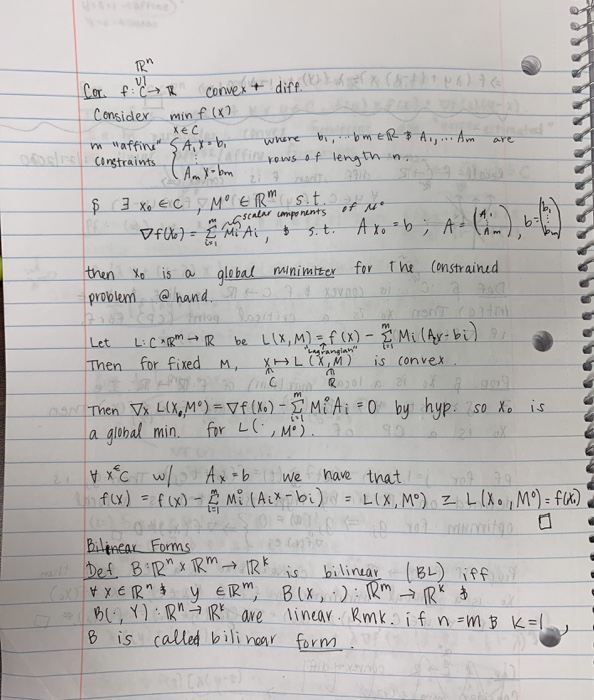 ℝⁿ
∪|
Cor. f: C → ℝ convex + diff.
Consider min f(x)
x∈C
m "affine" { A₁x=b₁ where b₁,...bm ∈ ℝ & A₁,... Am are
constraints ⋮ rows of length n.
Amx=bm
& ∃ x₀ ∈ C, M⁰ ∈ ℝᵐ s.t.
scalar components of M⁰
∇f(x₀) = Σᵢ₌₁ᵐ Mᵢ⁰Aᵢ, & s.t. Ax₀=b; A=(A₁ ⋮ Am), b=(b₁ ⋮ bm)
then x₀ is a global minimizer for the constrained
problem @ hand.
Let L: C×ℝᵐ→ℝ be L(x,M)=f(x) - Σᵢ₌₁ᵐ Mᵢ(Aᵢx-bᵢ)
"Lagrangian"
Then for fixed M, x↦L(x,M) is convex.
∩ ∩
C ℝ
Then ∇ₓ L(x₀,M⁰)=∇f(x₀) - Σᵢ₌₁ᵐ Mᵢ⁰Aᵢ=0 by hyp. so x₀ is
a global min. for L(·,M⁰).
∀ x∈C w/ Ax=b we have that
f(x) = f(x) - Σᵢ₌₁ᵐ Mᵢ⁰(Aᵢx-bᵢ) = L(x,M⁰) ≥ L(x₀,M⁰)=f(x₀)
□
Bilinear Forms
Def B:ℝⁿ×ℝᵐ→ℝᵏ is bilinear (BL) iff
∀ x∈ℝⁿ & y ∈ℝᵐ, B(x,·): ℝᵐ→ℝᵏ &
B(·,y): ℝⁿ→ℝᵏ are linear. Rmk: if n=m & k=1,
B is called bilinear form.